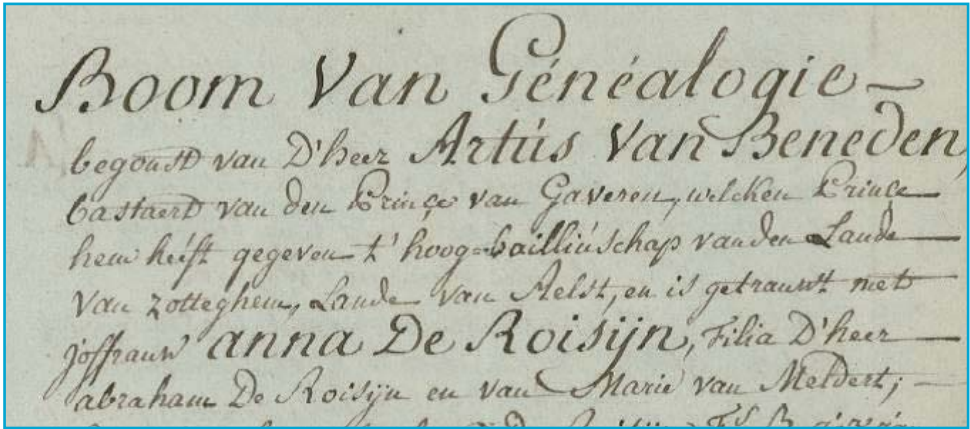 Boom Van Généalogie
begonst van D'heer Artús Van Beneden,
bastaert van den Prinçe van Gaveren, welcken Prinçe
hem héft gegeven t' hoog=bailliúschap vanden Lande
Van Zotteghem, Lande van Aelst, en is getrauwt met
joffrauw anna De Roisijn, Filia D'heer
abraham De Roisijn en van Marie van Meldert;